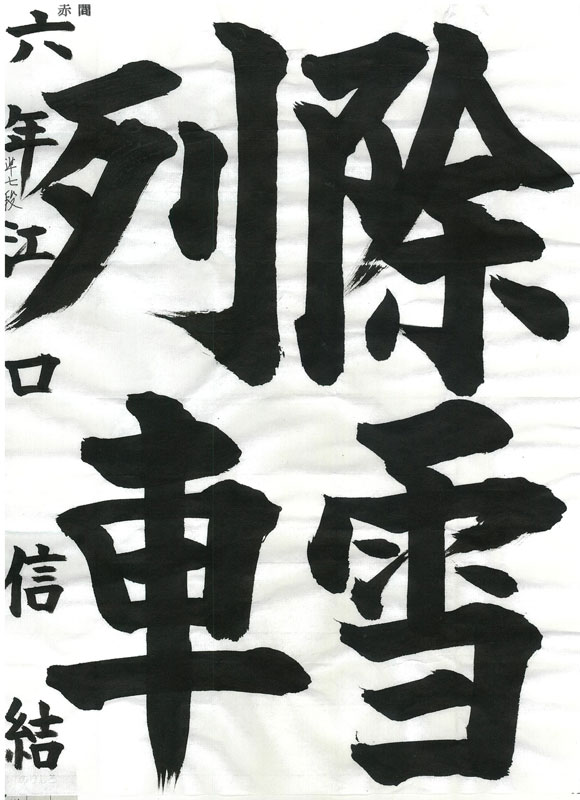 除雪
列車
六年江口信結
準七段
赤間